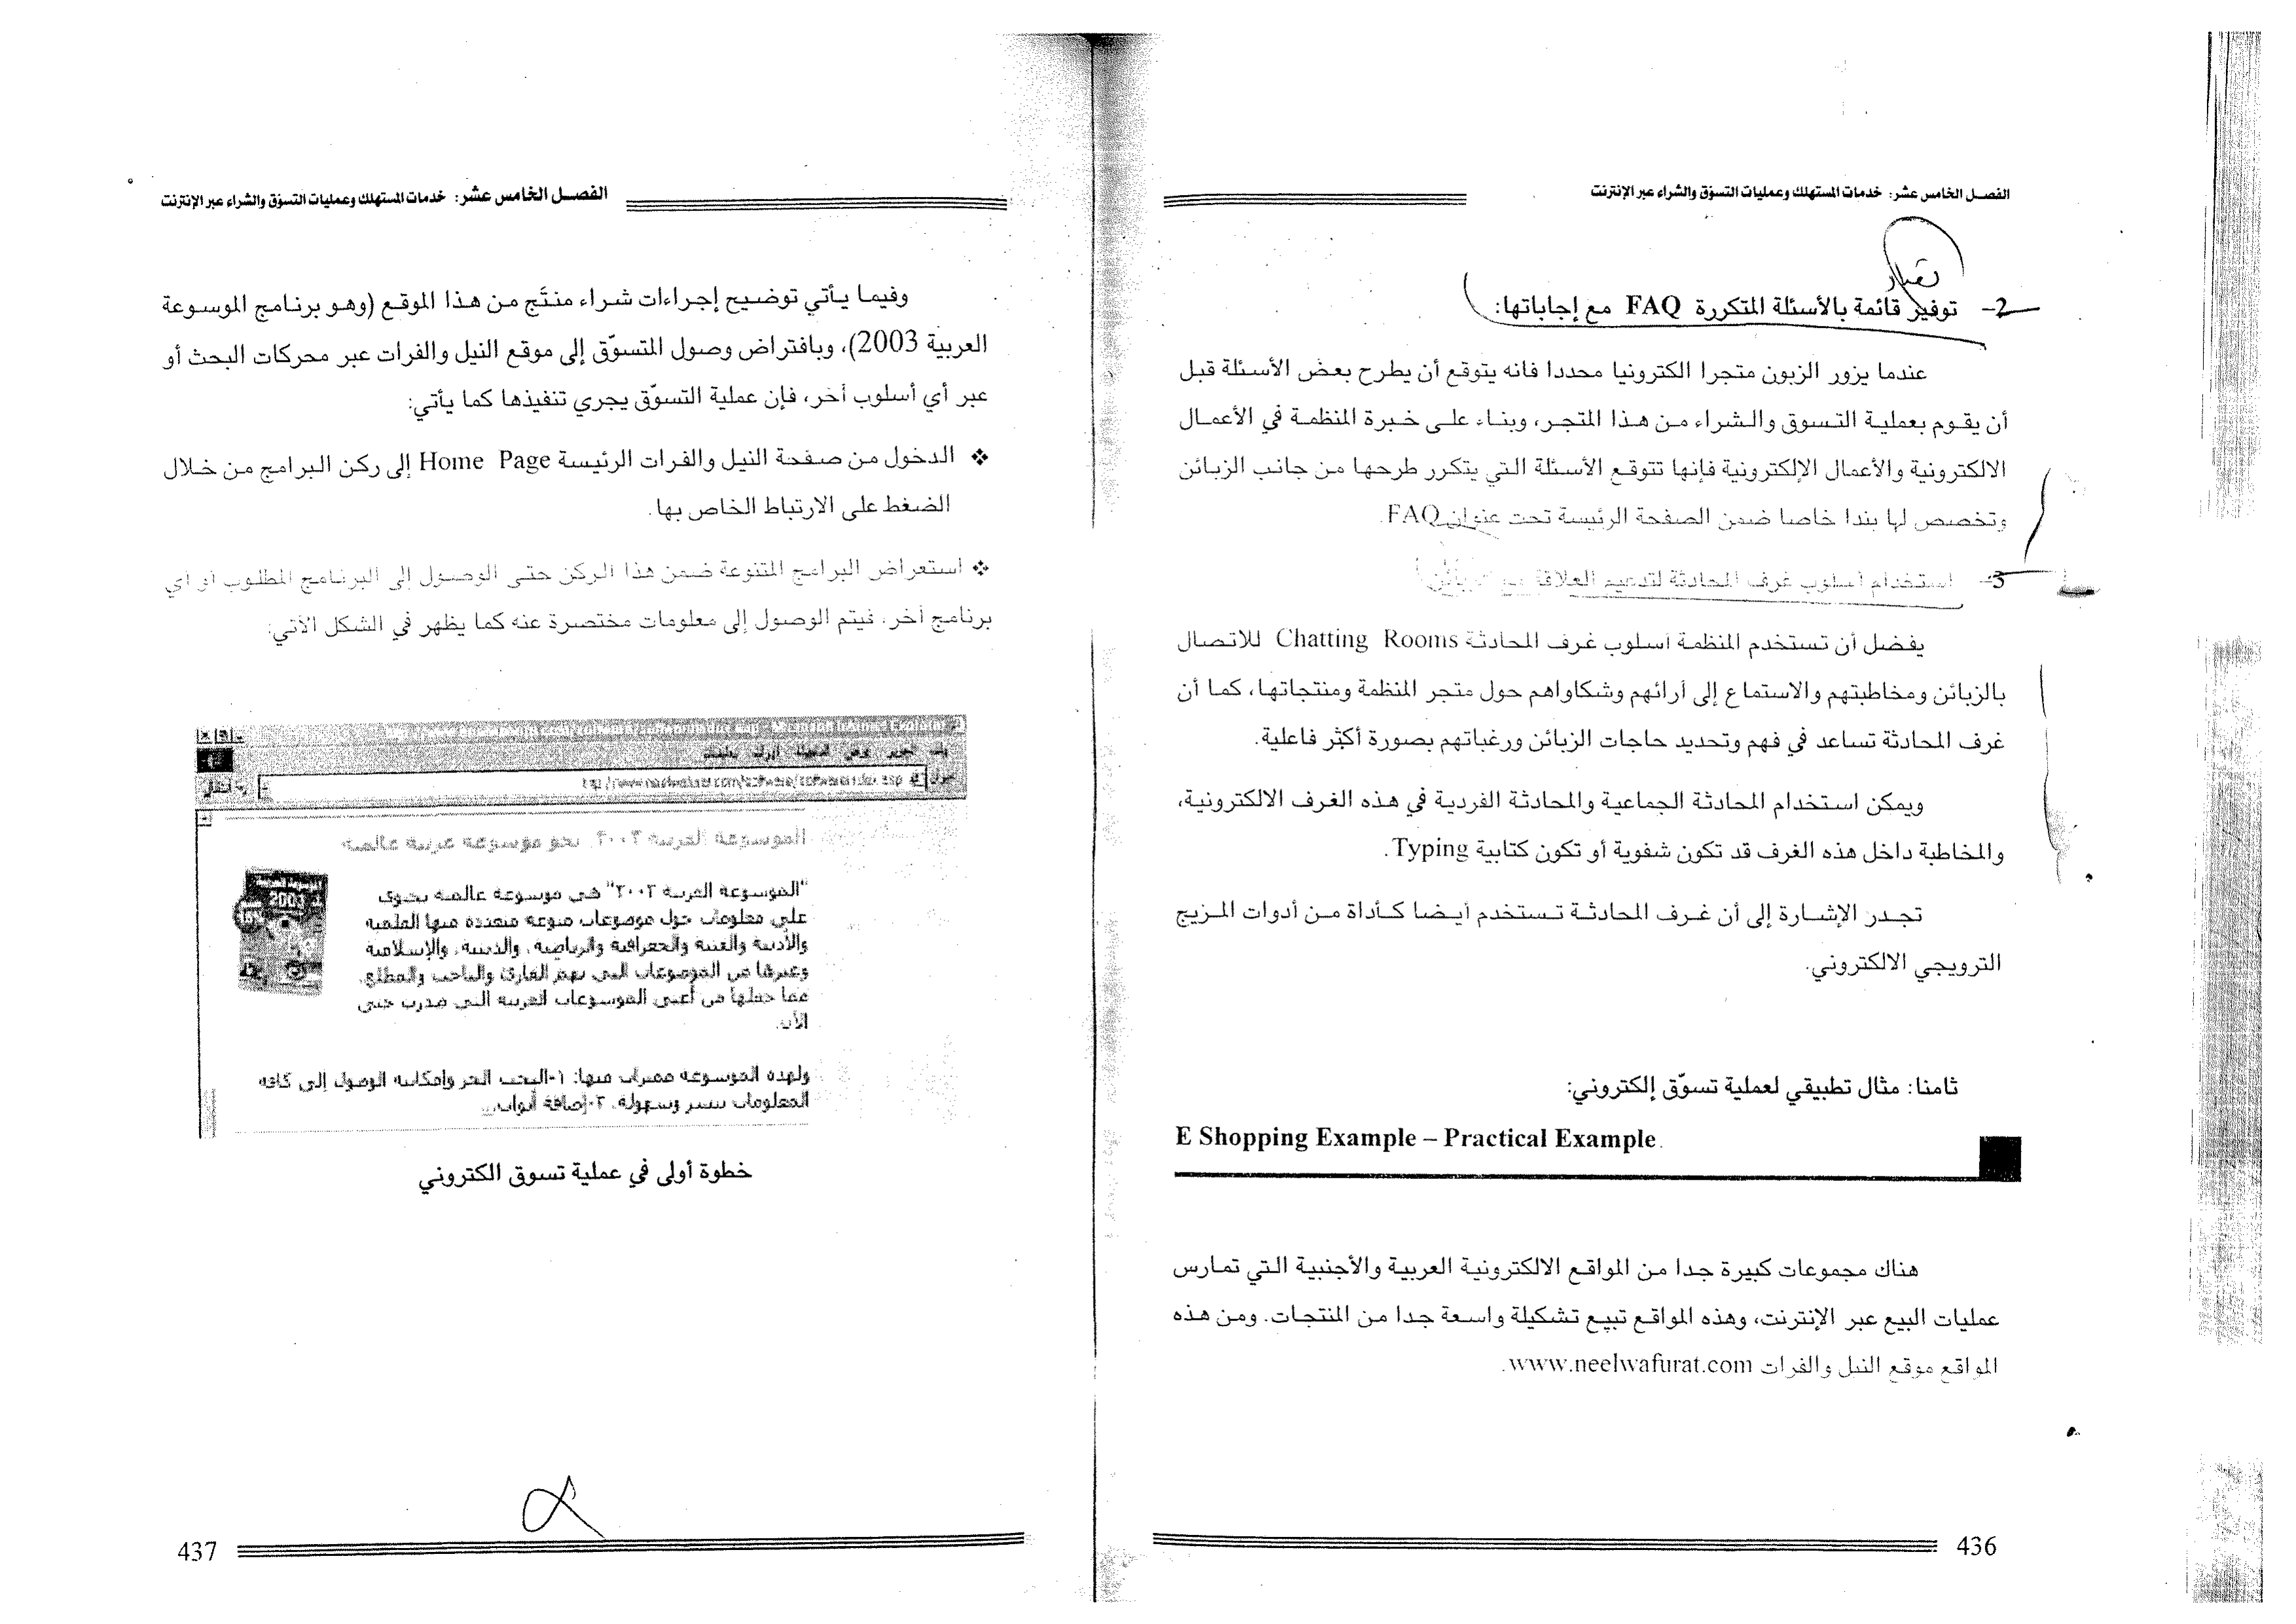 الفصل الخامس عشر: خدمات المستهلك وعمليات التسوّق والشراء عبر الإنترنت
2- توفير قائمة بالأسئلة المتكررة FAQ مع إجاباتها:
عندما يزور الزبون متجرا الكترونيا محددا فانه يتوقع أن يطرح بعض الأسئلة قبل
أن يقوم بعملية التسوق والشراء من هذا المتجر، وبناء على خبرة المنظمة في الأعمال
الالكترونية والأعمال الإلكترونية فإنها تتوقع الأسئلة التي يتكرر طرحها من جانب الزبائن
وتخصص لها بندا خاصا ضمن الصفحة الرئيسة تحت عنوان FAQ.
3- استخدام أسلوب غرف المحادثة لتدعيم العلاقة الزبائن
يفضل أن تستخدم المنظمة أسلوب غرف المحادثة Chatting Rooms للاتصال
بالزبائن ومخاطبتهم والاستماع إلى آرائهم وشكاواهم حول متجر المنظمة ومنتجاتها، كما أن
غرف المحادثة تساعد في فهم وتحديد حاجات الزبائن ورغباتهم بصورة أكثر فاعلية.
ويمكن استخدام المحادثة الجماعية والمحادثة الفردية في هذه الغرف الالكترونية،
والمخاطبة داخل هذه الغرف قد تكون شفوية أو تكون كتابية Typing.
تجدر الإشارة إلى أن غرف المحادثة تستخدم أيضا كأداة من أدوات المزيج
الترويجي الالكتروني.
ثامنا: مثال تطبيقي لعملية تسوّق إلكتروني:
E Shopping Example – Practical Example.
هناك مجموعات كبيرة جدا من المواقع الالكترونية العربية والأجنبية التي تمارس
عمليات البيع عبر الإنترنت، وهذه المواقع تبيع تشكيلة واسعة جدا من المنتجات. ومن هذه
المواقع موقع النيل والفرات www.neelwafurat.com.
436
الفصل الخامس عشر: خدمات المستهلك وعمليات التسوّق والشراء عبر الإنترنت
وفيما يأتي توضيح إجراءات شراء منتَج من هذا الموقع (وهو برنامج الموسوعة
العربية 2003)، وبافتراض وصول المتسوّق إلى موقع النيل والفرات عبر محركات البحث أو
عبر أي أسلوب آخر، فإن عملية التسوّق يجري تنفيذها كما يأتي:
❖ الدخول من صفحة النيل والفرات الرئيسة Home Page إلى ركن البرامج من خلال
الضغط على الارتباط الخاص بها.
❖ استعراض البرامج المتنوعة ضمن هذا الركن حتى الوصول إلى البرنامج المطلوب أو أي
برنامج آخر، فيتم الوصول إلى معلومات مختصرة عنه كما يظهر في الشكل الآتي:
الموسوعة العربية ٢٠٠٣ نحو موسوعة عربية عالمية
"الموسوعة العربية ٢٠٠٣" هي موسوعة عالمية تحوي
على معلومات حول موضوعات منوعة متعددة منها العلمية
والأدبية والفنية والجغرافية والرياضية، والدينية، والإسلامية
وغيرها من الموضوعات التي تهم القارئ والباحث والمطلع،
مما جعلها من أغنى الموسوعات العربية التي صدرت حتى
الآن.
ولهذه الموسوعة مميزات منها: ١-البحث الحر وإمكانية الوصول إلى كافة
المعلومات بيسر وسهولة. ٢-إضافة أبواب...
خطوة أولى في عملية تسوق الكتروني
437